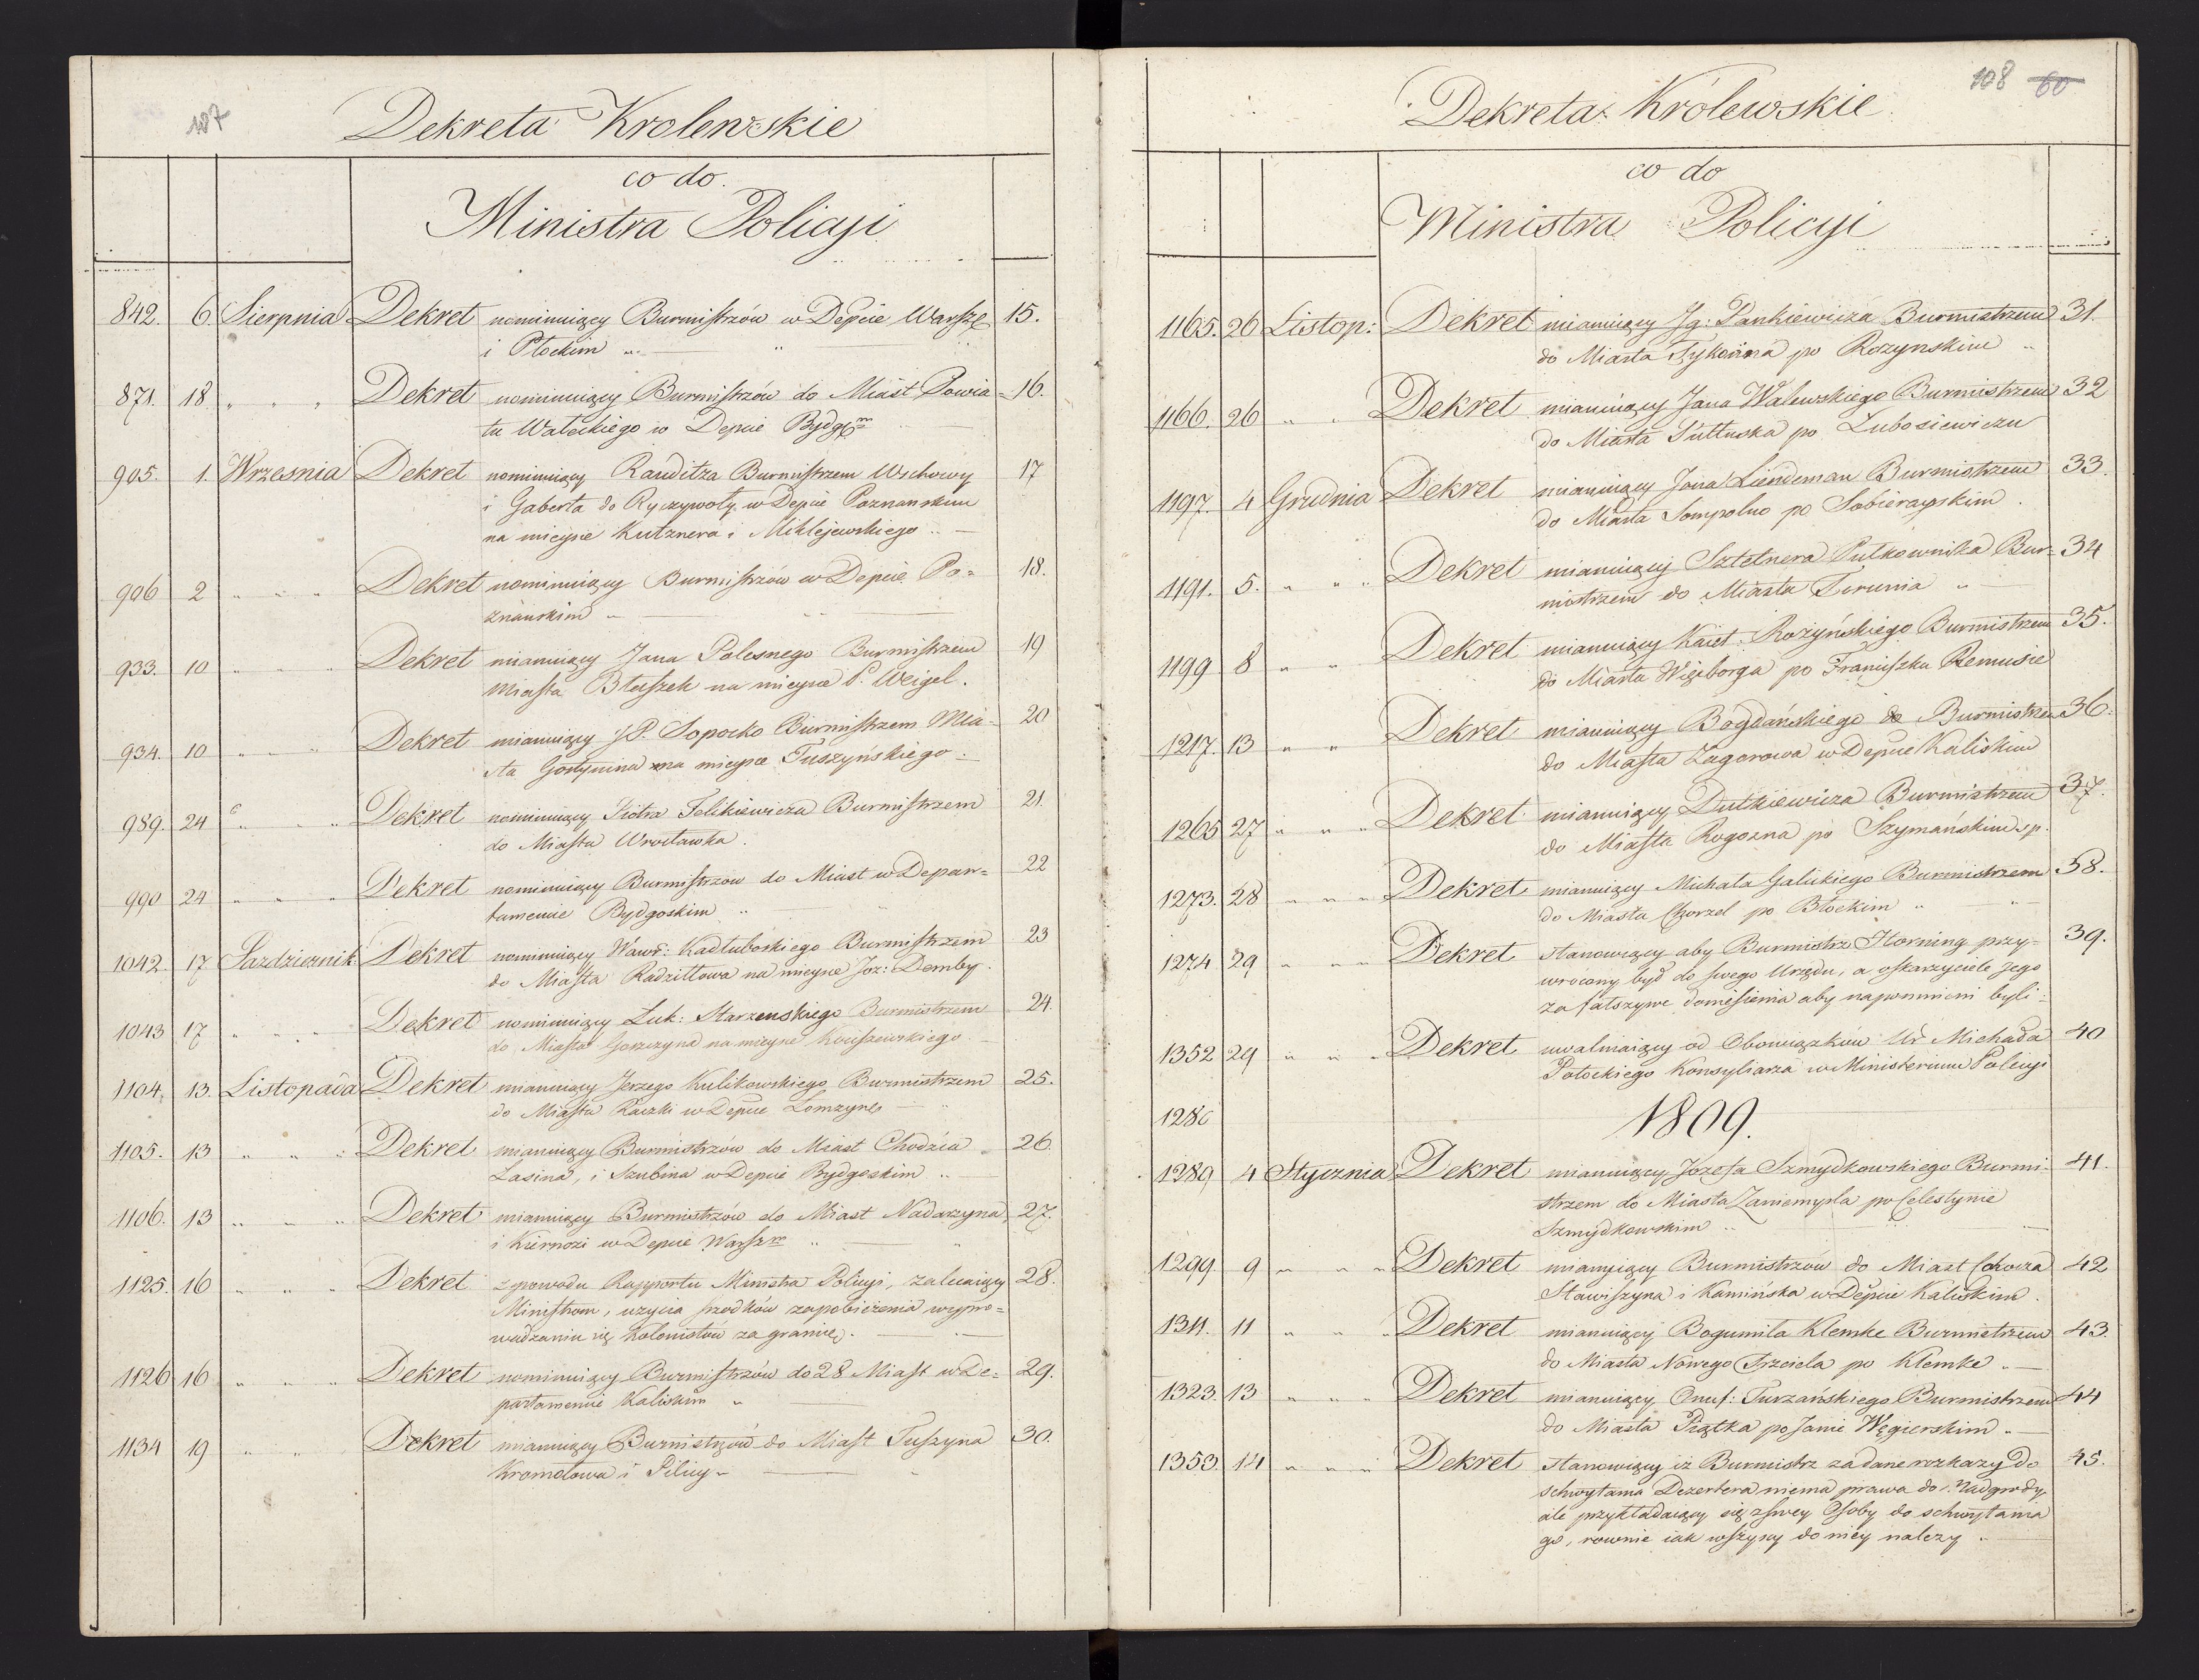 107
Dekreta Krolewskie
co do
Ministra Policyi
842. 6. Sierpnia Dekret nominuiący Burmistrzów w Depcie Warszę 15.
i Płockim „
871. 18 „ „ „ Dekret nominuiący Burmistrzów do Miast Powia- 16.
tu Wałeckiego w Depcie Bydg
905. 1. Wrzesnia Dekret nominuiący Rauditza Burmistrzem Wschowy 17
i Gaberta do Ryczywoły w Depcie Poznanskim
na mieysce Kutznera i Miklejewskiego „
906 2 „ „ „ Dekret nominuiący Burmistrzów w Depcie Po= 18.
znanskim „
933. 10 „ „ „ Dekret mianuiący Jana Polesnego Burmistrzem 19
Miasta Błaszek na mieysce P. Weigel.
934. 10 „ „ „ Dekret mianuiący JP. Sopocko Burmistrzem Mia- 20
sta Gostynina na mieysce Tuszyńskiego
989. 24 „ „ „ Dekret nominuiący Piotra Felikiewicza Burmistrzem 21.
do Miasta Wrocławka.
990 24 „ „ „ Dekret nominuiący Burmistrzow do Miast w Depar= 22
tamencie Bydgoskim „
1042. 17 Pazdziernik: Dekret nominuiący Wawr: Kadłubskiego Burmistrzem 23
do Miasta Radziłłowa na mieysce Joz: Demby.
1043 17 „ „ „ Dekret nominuiący Łuk: Starzenskiego Burmistrzem 24.
do Miasta Goszczyna na mieysce Kouszewskiego
1104. 13. Listopada Dekret mianuiący Jerzego Kulikowskiego Burmistrzem 25.
do Miasta Raczki w Depcie Łomzyn
1105. 13 „ „ „ Dekret mianuiący Burmistrzów do Miast Chodzca 26
Łasina, i Szubina w Depcie Bydgoskim „
1106. 13 „ „ „ Dekret mianuiący Burmistrzów do Miast Nadarzyna 27.
i Kiernozi w Depcie Warsz „
1125. 16 „ „ „ Dekret z powodu Rapportu Ministra Policyi, zalecaiący 28.
Ministrom, uzycia srodków zapobieżenia wypro=
wadzaniu się Kolonistów za granicę.
1126 16 „ „ „ Dekret nominuiący Burmistrzów do 28 Miast w De= 29.
partamencie Kaliskim „
1134 19 „ „ „ Dekret mianuiący Burmistrzów do Miast Tuszyna 30.
Kromołowa i Pilicy „
108 60
Dekreta Królewskie
co do
Ministra Policyi
1165. 26 Listop: Dekret mianuiący Jg: Pankiewicza Burmistrzem 31.
do Miasta Tykocina po Rozynskim „
1166. 26 „ „ Dekret mianuiący Jana Walewskiego Burmistrzem 32
do Miasta Pułtuska po Lubosiewiczu
1197. 4 Grudnia Dekret mianuiący Jana Liendeman Burmistrzem 33.
do Miasta Sompolno po Sobierayskim.
1191. 5. „ „ „ Dekret mianuiący Sztetnera Pułkownika Bur= 34
mistrzem do Miasta Torunia „
1199 8 „ „ Dekret mianuiący Kaiet: Rożyńskiego Burmistrzem 35.
do Miasta Więcborga po Franciszku Remusie
1217. 13 „ „ Dekret mianuiący Bogdańskiego do Burmistrzem 36.
do Miasta Zagorowa w Depcie Kaliskim
1265 27 „ „ „ Dekret mianuiący Dutkiewicza Burmistrzem 37.
do Miasta Rogozna po Szymańskim
1273. 28 „ „ „ Dekret mianuiący Michała Galickiego Burmistrzem 38.
do Miasta Chorzel po Błockim „
1274 29 „ „ „ Dekret stanowiący aby Burmistrz Horning przy= 39.
wrócony był do swego Urzędu, a oskarzyciele jego
za fałszywe doniesienia aby napomnieni byli
1352 29 „ „ „ Dekret uwalniaiący od Obowiązków Ur Michała 40
Potockiego Konsyliarza w Ministerium Policyi
1280
1809.
1289 4 Stycznia Dekret mianuiący Jozefa Szmydkowskiego Burmi- 41.
strzem do Miasta Zaniemysla po Celestynie
Szmydkowskim „
1299. 9 „ „ „ Dekret mianuiący Burmistrzów do Miast Chocza 42
Stawiszyna i Kamińska w Depcie Kaliskim.
1311. 11 „ „ „ Dekret mianuiący Bogumiła Klemke Burmistrzem 43.
do Miasta Nowego Trzciela po Klemke „
1323. 13 „ „ „ Dekret mianuiący Onuf: Turzańskiego Burmistrzem 44
do Miasta Piątka po Janie Węgierskim „
1353. 14 „ „ „ Dekret stanowiący iz Burmistrz za dane rozkazy do 45.
schwytania Dezertera niema prawa do Nadgrody
ale przykładaiący się z swey Osoby do schwytania
go, rownie iak wszyscy do niey nalezy.